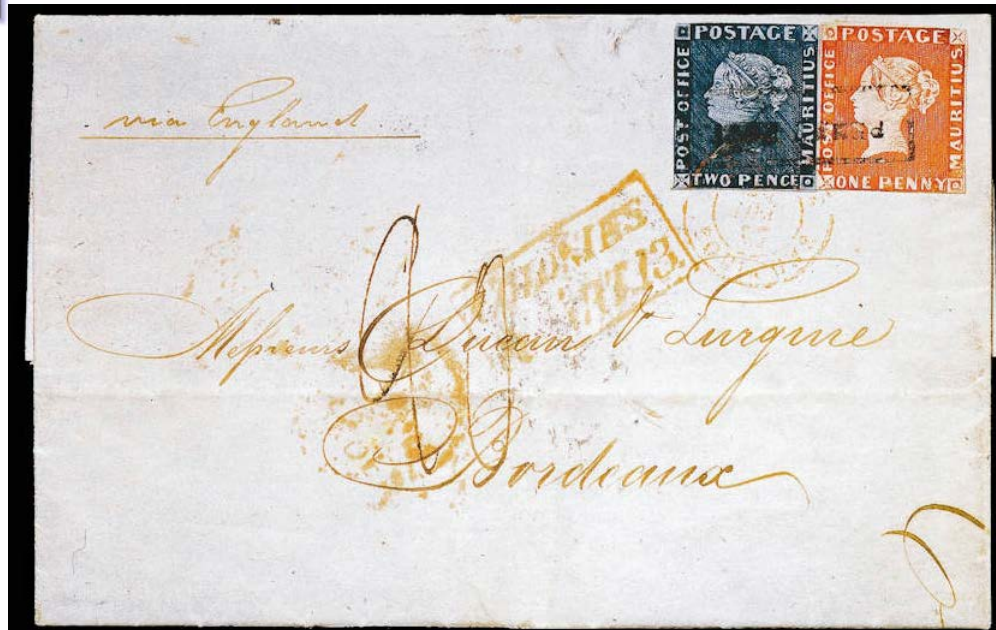 POSTAGE
POST OFFICE
MAURITIUS
TWO PENCE
POSTAGE
POST OFFICE
MAURITIUS
ONE PENNY
via England
COLONIES
ART.13.
Messieurs Ducau & Lurguie
Bordeaux